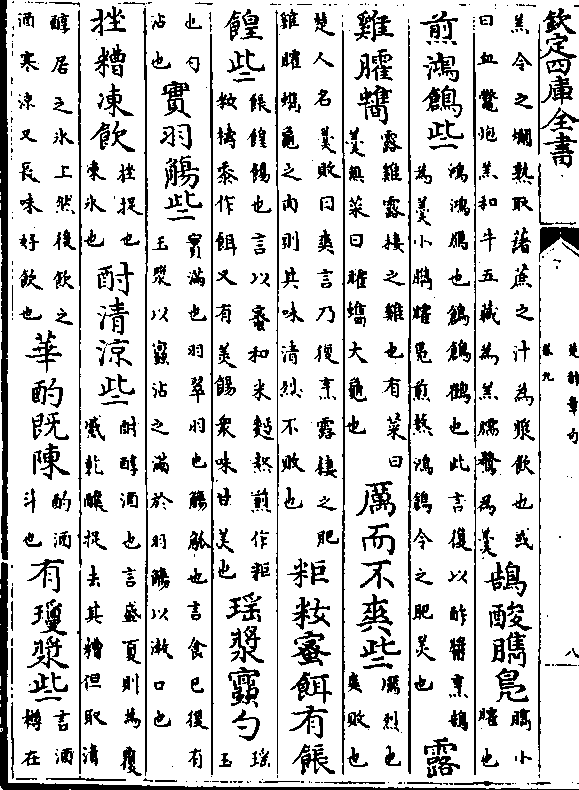 欽定四庫全書
楚辭章句
卷九
八
羔令之爛熟取藷蔗之汁為漿飲也或
曰血鼈炮羔和牛五藏為羔臛鼈為羹
鵠酸臇鳧
臇小
臛也
煎鴻鶬些
鴻鴻鴈也鶬鶬鶴也此言復以酢醬烹鵠
為羹小臇臛鳧煎熬鴻鶬令之肥美也
露
雞臛蠵
露雞露棲之雞也有菜曰
羹無菜曰臛蠵大龜也
厲而不爽些
厲烈也
爽敗也
楚人名羹敗曰爽言乃復烹露棲之肥
雞臛蠵龜之肉則其味清烈不敗也
粔籹蜜餌有餦
餭些
餦餭餳也言以蜜和米麪熬煎作粔
籹擣黍作餌又有美餳衆味甘美也
瑶漿勺
瑶
玉
也勺
沾也
實羽觴些
實滿也羽翠羽也觴觚也言食已復有
玉漿以沾之滿於羽觴以漱口也
挫糟凍飲
挫捉也
凍氷也
酎清涼些
酎醇酒也言盛夏則為覆
蹙乾釀捉去其糟但取清
醇居之氷上然後飲之
酒寒涼又長味好飲也
華酌既陳
酌酒
斗也
有瓊漿些
言酒
樽在